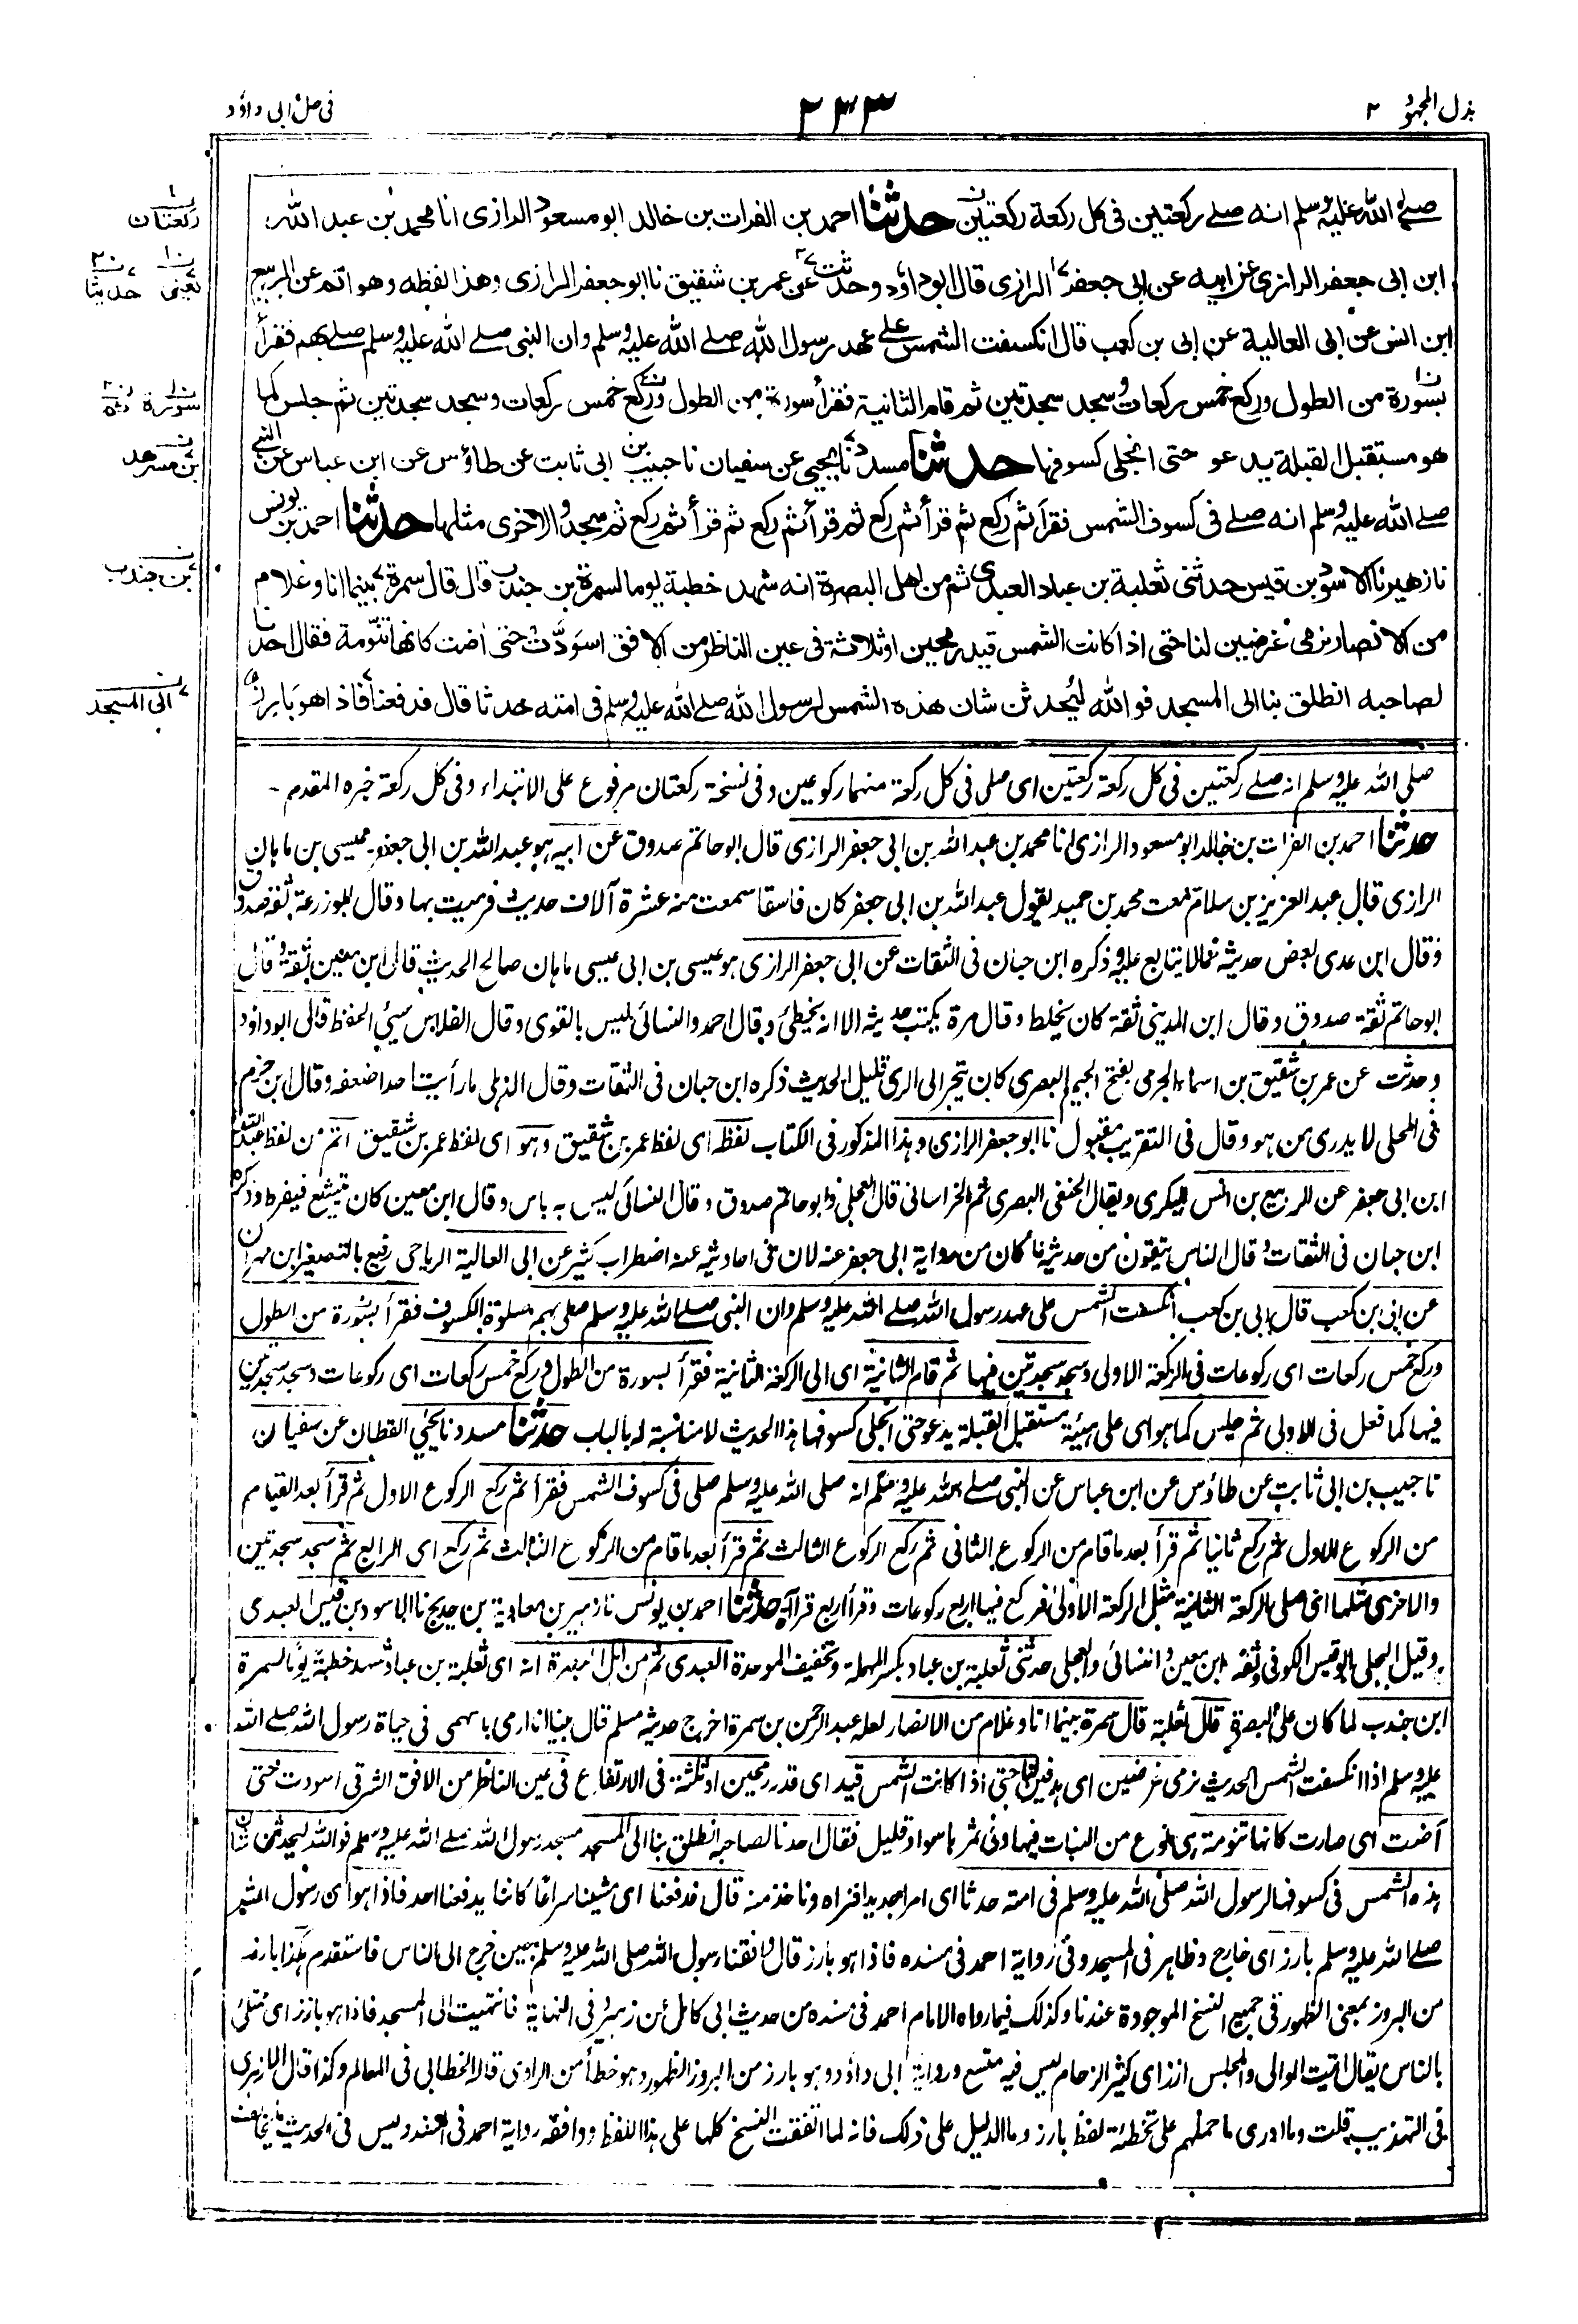 بذل المجهود ٢
٢٣٣
في حل ابي داؤد
صلے الله عليه وسلم انه صلے ركعتين فى كل ركعة ركعتين حدثنا احمد بن الفرات بن خالد ابو مسعود الرازى انا محمد بن عبد الله
ابن ابى جعفر الرازى عن ابيه عن ابى جعفر الرازى قال ابو داؤد وحدثت عن عمر بن شقيق نا ابو جعفر الرازى وهذا لفظه وهو اتم عن الربيع
ابن انس عن ابى العالية عن ابى بن كعب قال انكسفت الشمس على عهد رسول الله صلے الله عليه وسلم وان النبى صلے الله عليه وسلم صلے بهم فقرأ
بسورة من الطول وركع خمس ركعات وسجد سجدتين ثم قام الثانية فقرأ سورة من الطول وركع خمس ركعات وسجد سجدتين ثم جلس كما
هو مستقبل القبلة يدعو حتى انجلى كسوفها حدثنا مسدد نا يحيى عن سفيان نا حبيب بن ابى ثابت عن طاؤس عن ابن عباس عن النبى
صلے الله عليه وسلم انه صلے فى كسوف الشمس فقرأ ثم ركع ثم قرأ ثم ركع ثم قرأ ثم ركع ثم قرأ ثم ركع ثم سجد والاخرى مثلها حدثنا احمد بن يونس
نا زهير نا الاسود بن قيس حدثنى ثعلبة بن عباد العبدى ثم من اهل البصرة انه شهد خطبة يوما لسمرة بن جندب قال قال سمرة بينما انا وغلام
من الانصار نرمى غرضين لنا حتى اذا كانت الشمس قيد رمحين او ثلاثة فى عين الناظر من الافق اسودّت حتى اضت كانها تنّومة فقال احدنا
لصاحبه انطلق بنا الى المسجد فو الله ليُحدثن شان هذه الشمس لرسول الله صلے الله عليه وسلم فى امته حدثا قال فدفعنا فاذا هو بارز
ركعتان
يعنى حدثنا
سورة
بن مسرهد
بن جندب
الى المسجد
صلى الله عليه وسلم انه صلے ركعتين فى كل ركعة ركعتين اى صلى فى كل ركعة منهما ركوعين وفى نسخة ركعتان مرفوع على الابتداء وفى كل ركعة خبره المقدم -
حدثنا احمد بن الفرات بن خالد ابو مسعود الرازى انا محمد بن عبد الله بن ابى جعفر الرازى قال ابو حاتم صدوق عن ابيه هو عبد الله بن ابى جعفر عيسى بن ماهان
الرازى قال عبد العزيز بن سلام سمعت محمد بن حميد يقول عبد الله بن ابى جعفر كان فاسقا سمعت منه عشرة آلاف حديث فرميت بها وقال ابو زرعة ثقة صدوق
وقال ابن عدى بعض حديثه مما لا يتابع عليه وذكره ابن حبان فى الثقات عن ابى جعفر الرازى هو عيسى بن ابى عيسى ماهان صالح الحديث قال ابن معين ثقة وقال
ابو حاتم ثقة صدوق وقال ابن المدينى ثقة كان يخلط وقال مرة يكتب حديثه الا انه يخطئ وقال احمد والنسائى ليس بالقوى وقال الفلاس سيئ الحفظ قال ابو داؤد
وحدثت عن عمر بن شقيق بن اسماء الجرمى بفتح الجيم البصرى كان يتجر الى الرى قليل الحديث ذكره ابن حبان فى الثقات وقال الذهلى ما رأيت احدا ضعفه وقال ابن حزم
فى المحلى لا يدرى من هو وقال فى التقريب مقبول نا ابو جعفر الرازى وهذا المذكور فى الكتاب لفظه اى لفظ عمر بن شقيق وهو اى لفظ عمر بن شقيق اتم من لفظ عبد الله
ابن ابى جعفر عن الربيع بن انس البكرى ويقال الحنفى البصرى ثم الخراسانى قال العجلى وابو حاتم صدوق وقال النسائى ليس به باس وقال ابن معين كان يتشيع فيفرط وذكره
ابن حبان فى الثقات وقال الناس يتقون من حديثه ما كان من رواية ابى جعفر عنه لان فى احاديثه عنه اضطراب كثير عن ابى العالية الرياحى رفيع بالتصغير ابن مهران
عن ابى بن كعب قال ابى بن كعب انكسفت الشمس على عهد رسول الله صلے الله عليه وسلم وان النبى صلے الله عليه وسلم صلى بهم صلوة الكسوف فقرأ بسورة من الطول
وركع خمس ركعات اى ركوعات فى الركعة الاولى وسجد سجدتين فيها ثم قام الثانية اى الى الركعة الثانية فقرأ بسورة من الطول وركع خمس ركعات اى ركوعات وسجد سجدتين
فيها كما فعل فى الاولى ثم جلس كما هو اى على هيئة مستقبل القبلة يدعو حتى انجلى كسوفها هذا الحديث لا مناسبة له بالباب حدثنا مسدد نا يحيى القطان عن سفيان
نا حبيب بن ابى ثابت عن طاؤس عن ابن عباس عن النبى صلے الله عليه وسلم انه صلى الله عليه وسلم صلى فى كسوف الشمس فقرأ ثم ركع الركوع الاول ثم قرأ بعد القيام
من الركوع الاول ثم ركع ثانيا ثم قرأ بعد ما قام من الركوع الثانى ثم ركع الركوع الثالث ثم قرأ بعد ما قام من الركوع الثالث ثم ركع اى الرابع ثم سجد سجدتين
والاخرى مثلها اى صلى الركعة الثانية مثل الركعة الاولى فركع فيها اربع ركوعات وقرأ اربع قراآة حدثنا احمد بن يونس نا زهير بن معاوية بن حديج نا الاسود بن قيس العبدى
وقيل البجلى ابو قيس الكوفى وثقه ابن معين والنسائى والعجلى حدثنى ثعلبة بن عباد بكسر المهملة وتخفيف الموحدة العبدى ثم من اهل البصرة انه اى ثعلبة بن عباد شهد خطبة يوما لسمرة
ابن جندب لما كان على البصرة قال ثعلبة قال سمرة بينما انا وغلام من الانصار لعله عبد الرحمن بن سمرة اخرج حديثه مسلم قال بينا انا ارمى باسهمى فى حياة رسول الله صلے الله
عليه وسلم اذا انكسفت الشمس الحديث نرمى غرضين اى هدفين لنا حتى اذا كانت الشمس قيد اى قدر رمحين او ثلثة فى الارتفاع فى عين الناظر من الافق الشرقى اسودت حتى
آضت اى صارت كانها تنومة هى نوع من النبات فيها وفى ثمرها سواد قليل فقال احدنا لصاحبه انطلق بنا الى المسجد مسجد رسول الله صلے الله عليه وسلم فوالله ليحدثن شان
هذه الشمس فى كسوفها لرسول الله صلى الله عليه وسلم فى امته حدثا اى امرا جديدا فنراه وناخذ منه قال فدفعنا اى مشينا سراعا كاننا يدفعنا احد فاذا هو اى رسول الله
صلے الله عليه وسلم بارز اى خارج وظاهر فى المسجد وفى رواية احمد فى مسنده فاذا هو بارز قال وافقنا رسول الله صلى الله عليه وسلم حين خرج الى الناس فاستقدم هكذا بارز
من البروز بمعنى الظهور فى جميع النسخ الموجودة عندنا وكذلك فيما رواه الامام احمد فى مسنده من حديث ابى كامل عن زهير وفى النهاية فانتهيت الى المسجد فاذا هو بازز اى ممتلئ
بالناس يقال اتيت الوالى والمجلس ازز اى كثير الزحام ليس فيه متسع ورواية ابى داؤد وهو بارز من البروز الظهور وهو خطأ من الراوى قاله الخطابى فى المعالم وكذا قال الازهرى
فى التهذيب قلت وما ادرى ما حملهم على تخطئة لفظ بارز وما الدليل على ذلك فانه لما اتفقت النسخ كلها على هذا اللفظ ووافقه رواية احمد فى المسند وليس فى الحديث ما يخالفه